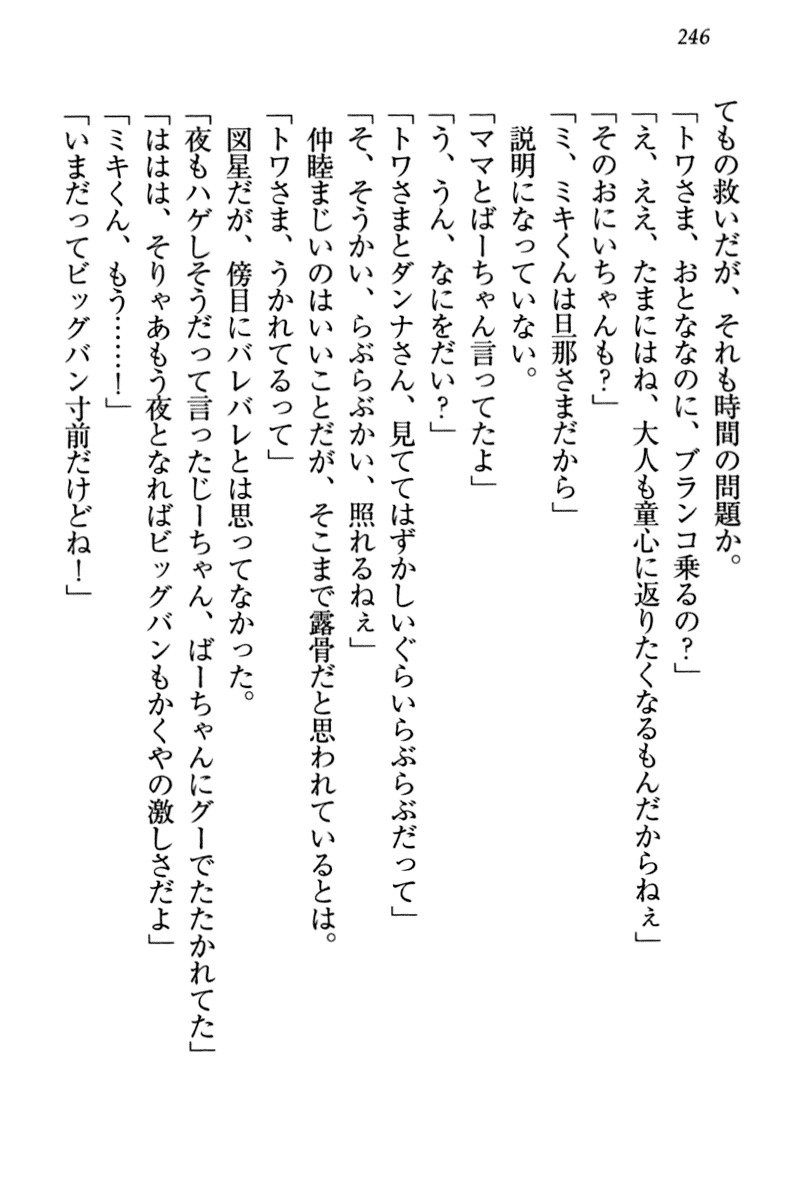 246
てもの救いだが、それも時間の問題か。
「トワさま、おとななのに、ブランコ乗るの?」
「え、ええ、たまにはね、大人も童心に返りたくなるもんだからねぇ」
「そのおにいちゃんも?」
「ミ、ミキくんは旦那さまだから」
説明になっていない。
「ママとばーちゃん言ってたよ」
「う、うん、なにをだい?」
「トワさまとダンナさん、見ててはずかしいぐらいらぶらぶだって」
「そ、そうかい、らぶらぶかい、照れるねぇ」
仲睦まじいのはいいことだが、そこまで露骨だと思われているとは。
「トワさま、うかれてるって」
図星だが、傍目にバレバレとは思ってなかった。
「夜もハゲしそうだって言ったじーちゃん、ばーちゃんにグーでたたかれてた」
「ははは、そりゃあもう夜となればビッグバンもかくやの激しさだよ」
「ミキくん、もう……!」
「いまだってビッグバン寸前だけどね!」